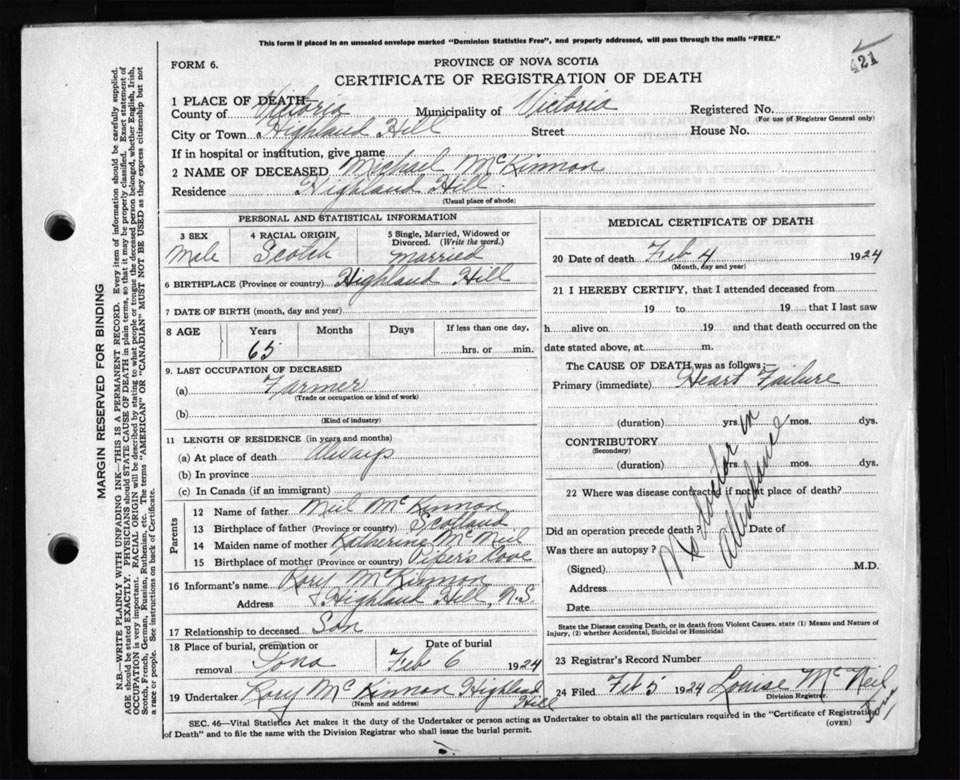 This form if placed in an unsealed envelope marked "Dominion Statistics Free", and properly addressed, will pass through the mails "FREE."
421
FORM 6.
PROVINCE OF NOVA SCOTIA
CERTIFICATE OF REGISTRATION OF DEATH
1 PLACE OF DEATH
County of Victoria Municipality of Victoria Registered No.
(For use of Registrar General only)
City or Town Highland Hill Street House No.
If in hospital or institution, give name
2 NAME OF DECEASED Michael McKinnon
Residence Highland Hill
(Usual place of abode)
PERSONAL AND STATISTICAL INFORMATION
3 SEX Male
4 RACIAL ORIGIN Scotch
5 Single, Married, Widowed or Divorced. (Write the word.) Married
6 BIRTHPLACE (Province or country) Highland Hill
7 DATE OF BIRTH (month, day and year)
8 AGE Years Months Days If less than one day,
65 hrs. or min.
9. LAST OCCUPATION OF DECEASED
(a) Farmer
(Trade or occupation or kind of work)
(b)
(Kind of industry)
11 LENGTH OF RESIDENCE (in years and months)
(a) At place of death Always
(b) In province
(c) In Canada (if an immigrant)
Parents
12 Name of father Neil McKinnon
13 Birthplace of father (Province or country) Scotland
14 Maiden name of mother Katherine McNeil
15 Birthplace of mother (Province or country) Piper's Cove
16 Informant's name Rory McKinnon
Address Highland Hill, N.S
17 Relationship to deceased Son
18 Place of burial, cremation or removal Iona
Date of burial Feb 6 1924
19 Undertaker Rory McKinnon Highland Hill
(Name and address)
MEDICAL CERTIFICATE OF DEATH
20 Date of death Feb 4 1924
(Month, day and year)
21 I HEREBY CERTIFY, that I attended deceased from
19 to 19 that I last saw
h alive on 19 and that death occurred on the
date stated above, at m.
The CAUSE OF DEATH was as follows:
Primary (immediate) Heart Failure
(duration) yrs. mos. dys.
CONTRIBUTORY
(Secondary)
(duration) yrs. mos. dys.
22 Where was disease contracted if not at place of death?
Did an operation precede death? Date of
Was there an autopsy?
(Signed) M.D.
Address
Date
No doctor in attendance
State the Disease causing Death, or in death from Violent Causes. state (1) Means and Nature of
Injury, (2) whether Accidental, Suicidal or Homicidal
23 Registrar's Record Number
24 Filed Feb 5 1924 Louise McNeil
Division Registrar.
SEC. 46—Vital Statistics Act makes it the duty of the Undertaker or person acting as Undertaker to obtain all the particulars required in the "Certificate of Registration
of Death" and to file the same with the Division Registrar who shall issue the burial permit.
(OVER)
MARGIN RESERVED FOR BINDING
N.B.—WRITE PLAINLY WITH UNFADING INK—THIS IS A PERMANENT RECORD. Every item of information should be carefully supplied.
AGE should be stated EXACTLY. PHYSICIANS should STATE CAUSE OF DEATH in plain terms, so that it may be properly classified. Exact statement of
OCCUPATION is very important. RACIAL ORIGIN will be described by stating to what people or tongue the deceased person belonged, whether English, Irish,
Scotch, French, German, Russian, Ruthenian, etc. The terms "AMERICAN" or "CANADIAN" MUST NOT BE USED as they express citizenship but not
a race or people. See instructions on back of Certificate.